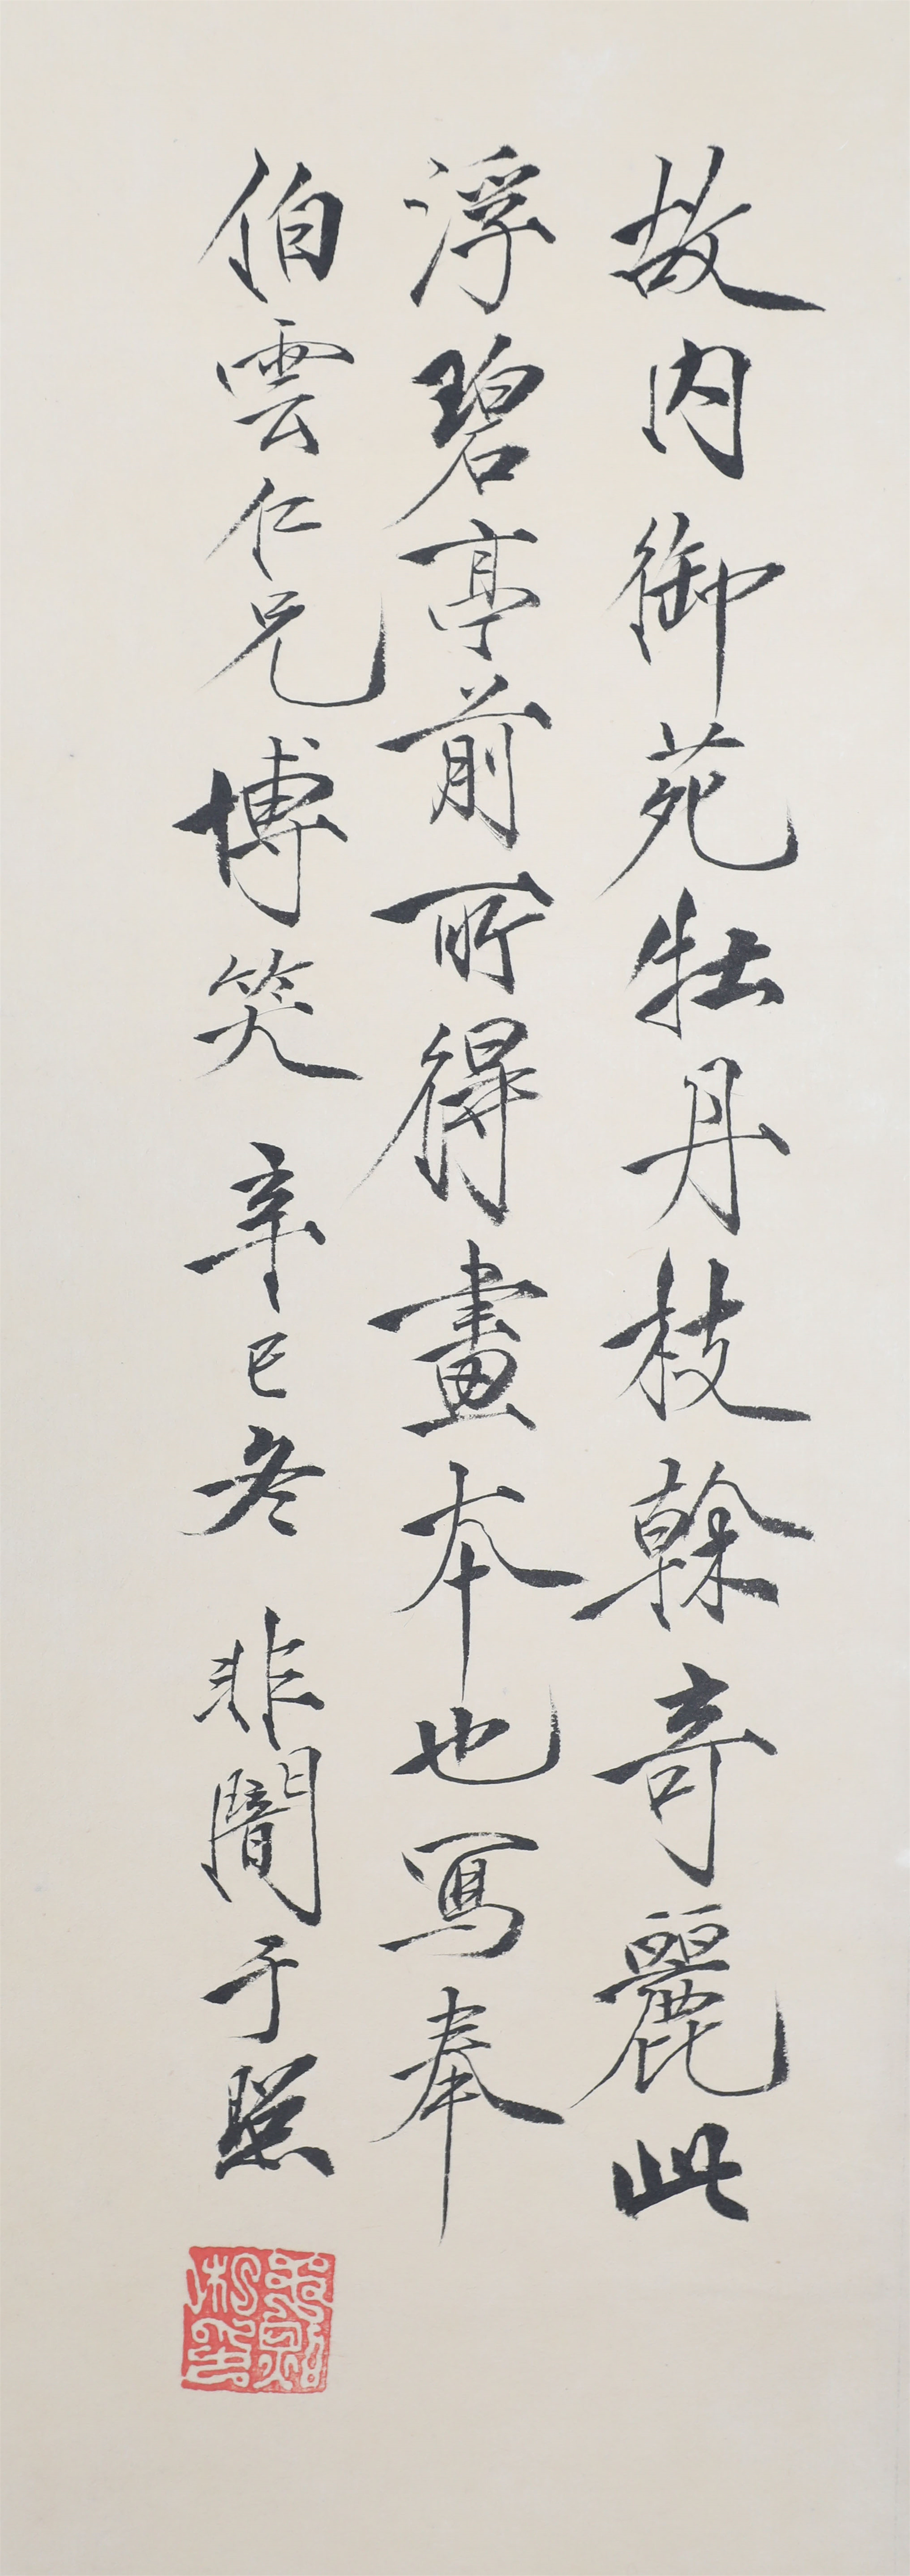 故内御苑牡丹枝榦奇麗此
浮碧亭前所得畫本也寫奉
伯雲仁兄博笑 辛巳冬 非闇于照